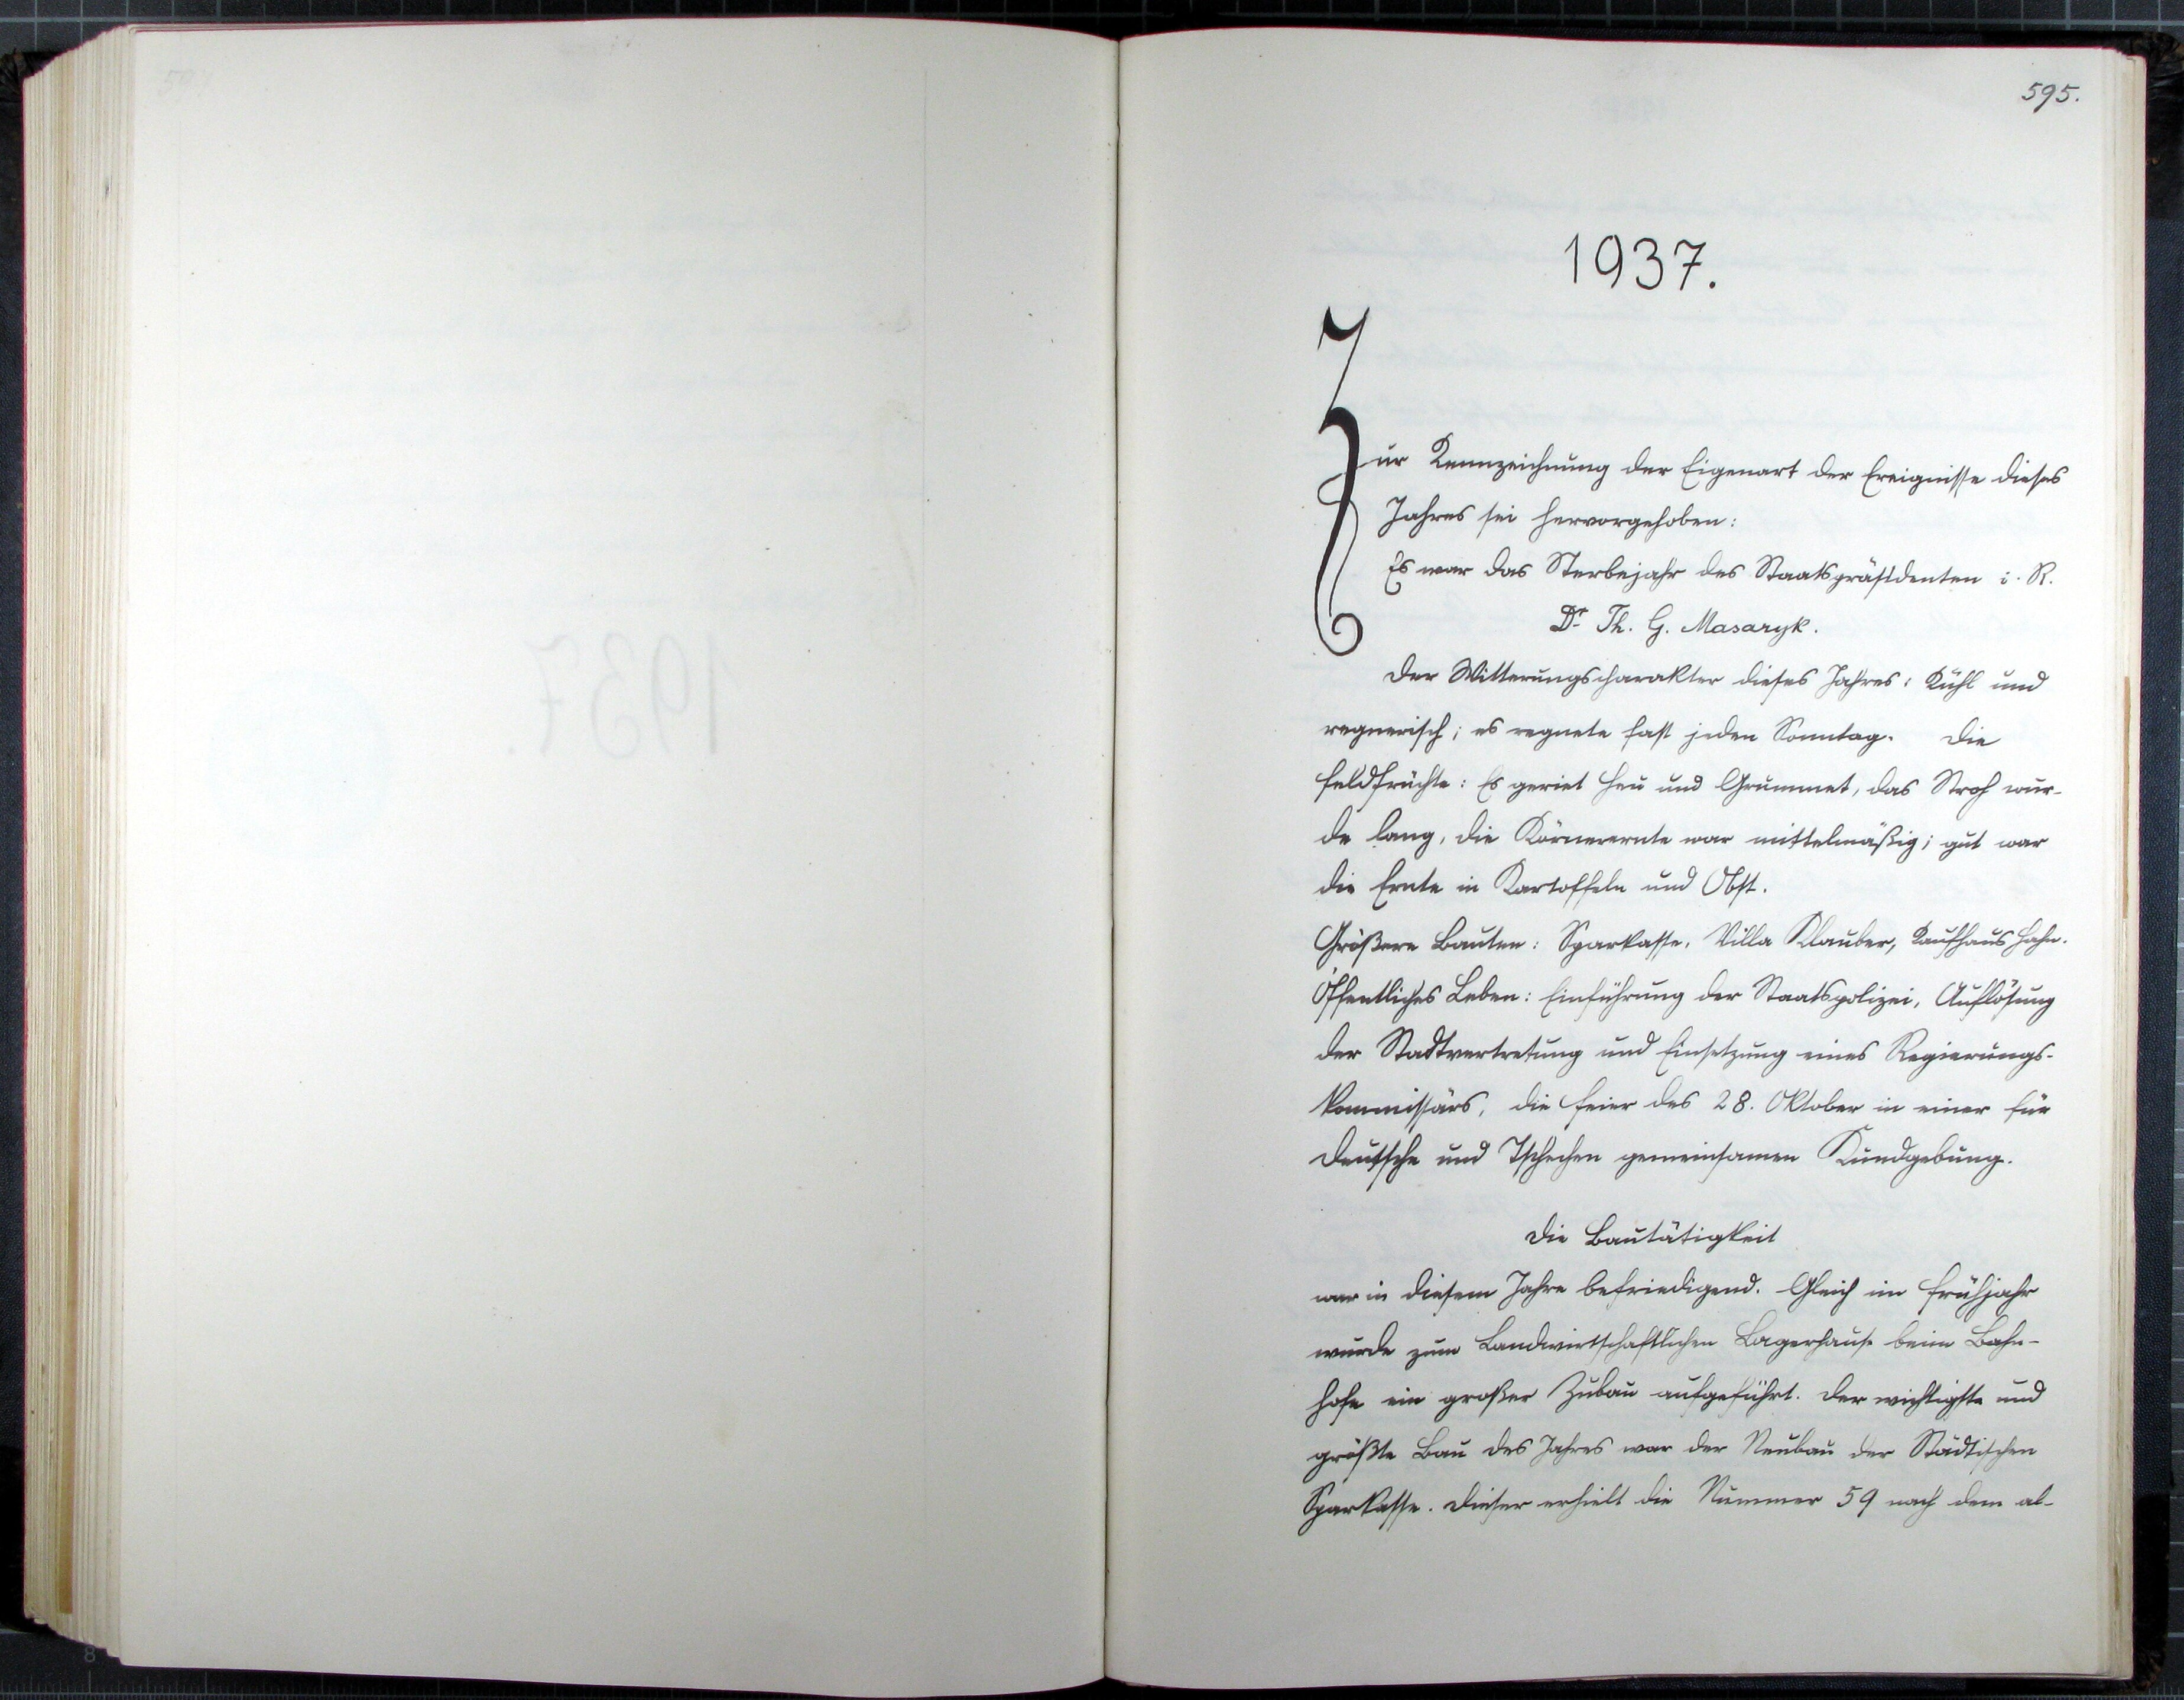 595.
1937.
Zur Kennzeichnung der Eigenart der Ereignisse dieses
Jahres sei hervorgehoben:
Es war das Sterbejahr des Staatspräsidenten i. R.
Dr Th. G. Masaryk.
Der Witterungscharakter dieses Jahres: Kühl und
regnerisch; es regnete fast jeden Sonntag. Die
Feldfrüchte: Es geriet Heu und Grummet, das Stroh wur-
de lang, die Körnerernte war mittelmäßig; gut war
die Ernte in Kartoffeln und Obst.
Größere Bauten: Sparkasse, Villa Klauber, Kaufhaus Hahn.
Öffentliches Leben: Einführung der Staatspolizei, Auflösung
der Stadtvertretung und Einsetzung eines Regierungs-
kommissärs, die Feier des 28. Oktober in einer für
Deutsche und Tschechen gemeinsamen Kundgebung.
Die Bautätigkeit
war in diesem Jahre befriedigend. Gleich im Frühjahr
wurde zum Landwirtschaftlichen Lagerhause beim Bahn-
hofe ein großer Zubau aufgeführt. Der wichtigste und
größte Bau des Jahres war der Neubau der Städtischen
Sparkasse. Dieser erhielt die Nummer 59 nach dem al-